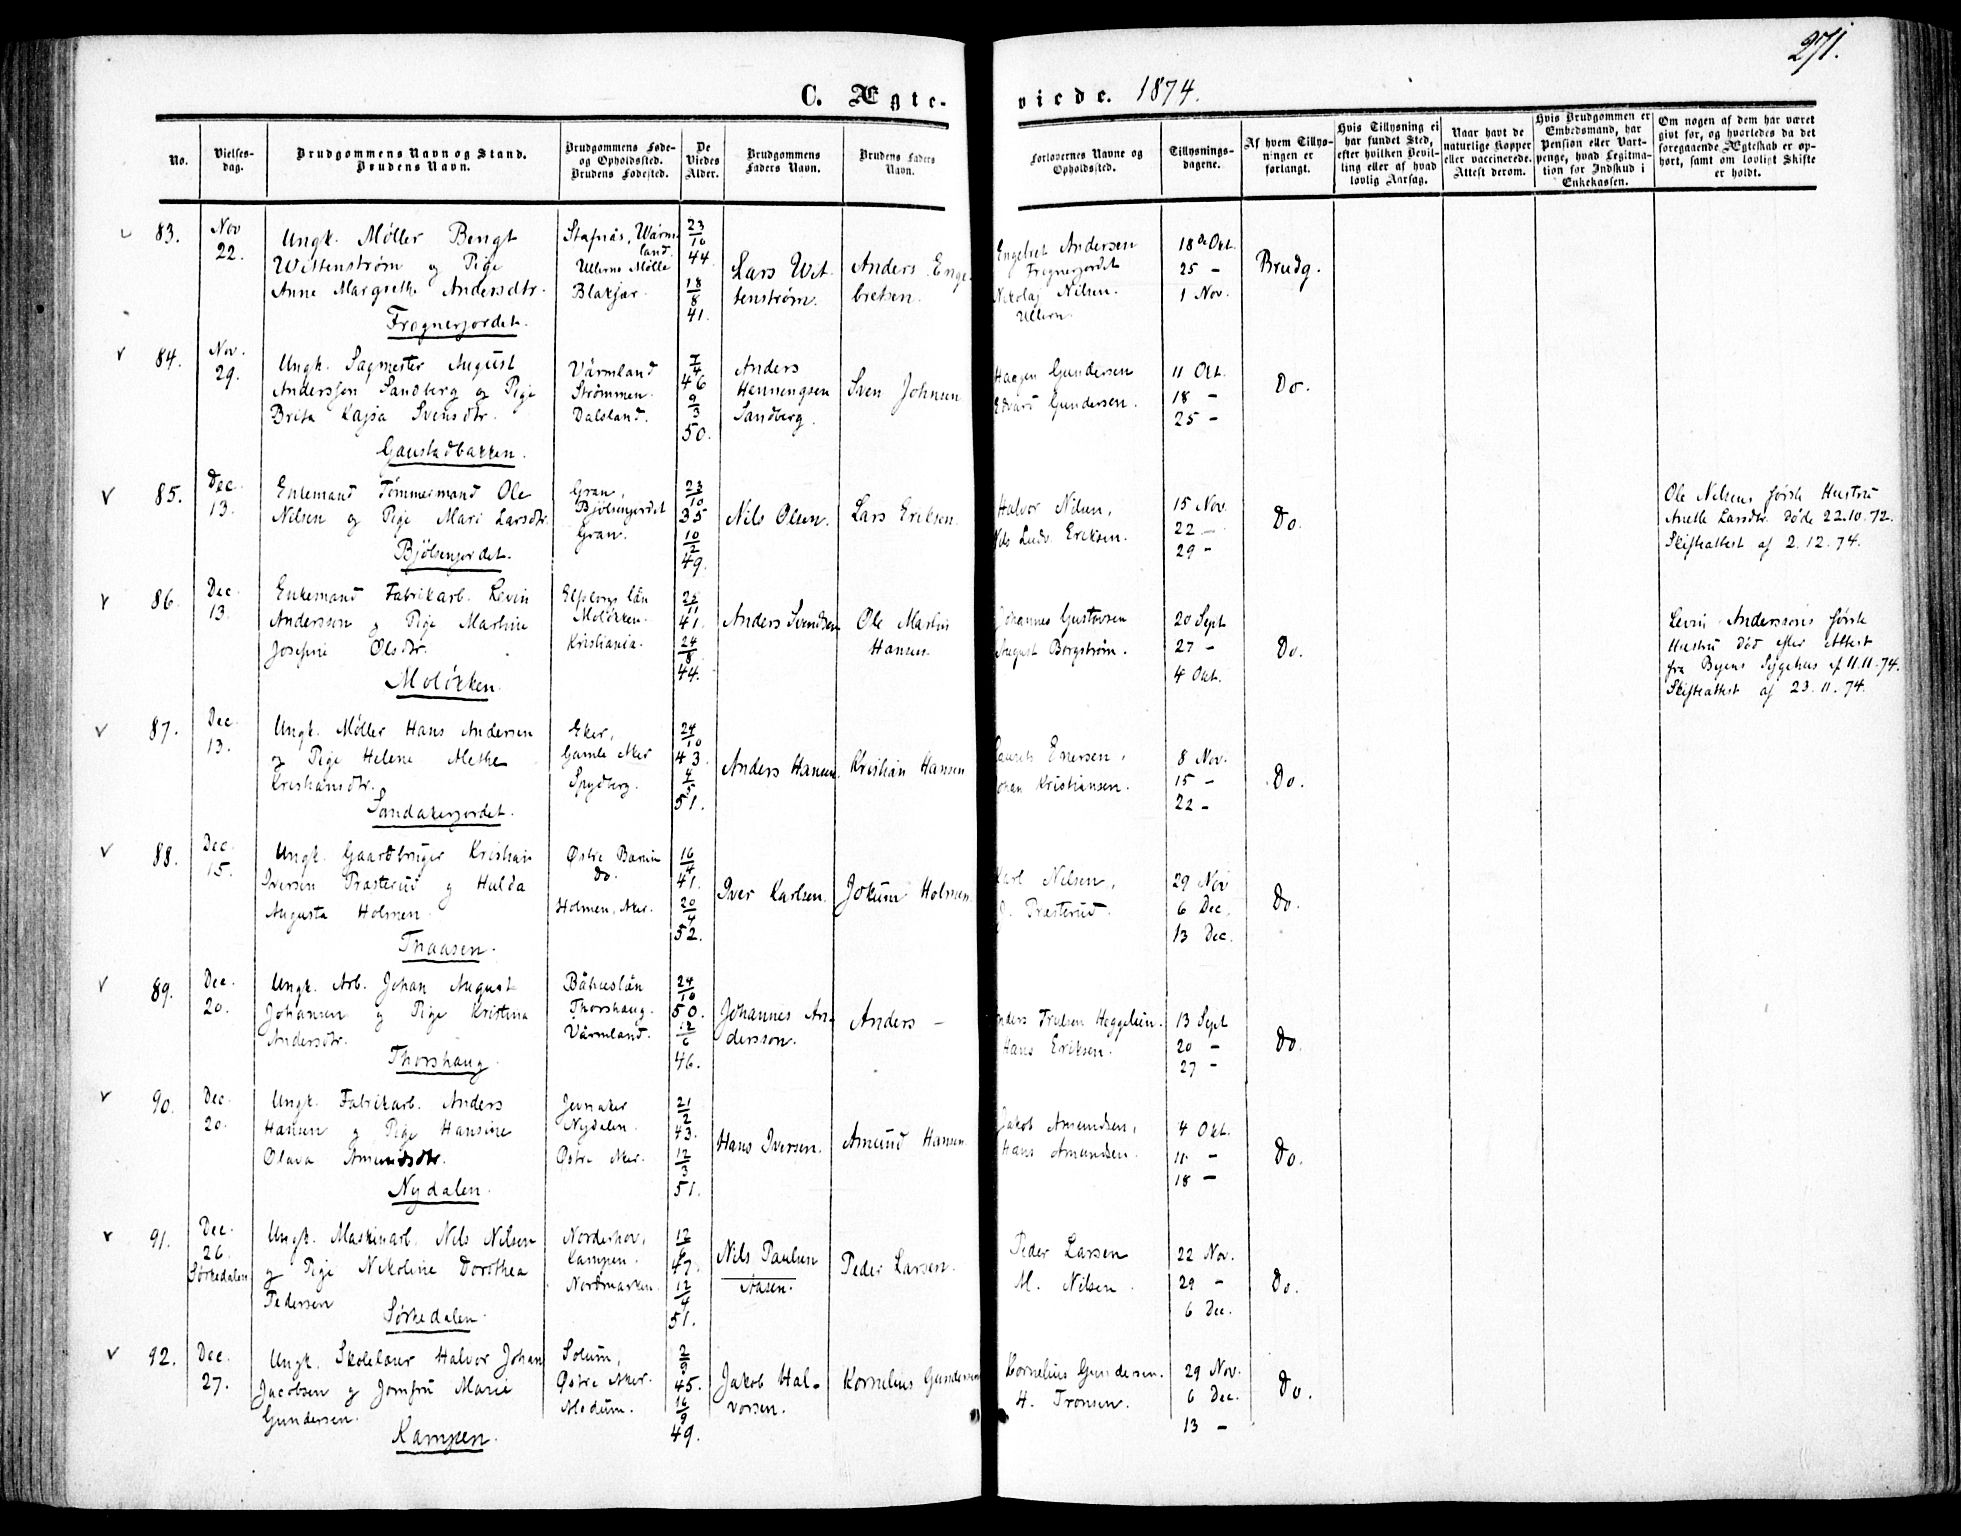 271.
C. Ægte-
viede. 1874.
No.
Vielses-
dag.
Brudgommens Navn og Stand.
Brudens Navn.
Brudgommens Føde-
og Opholdssted.
Brudens Fødested.
De
Viedes
Alder.
Brudgommens
Faders Navn.
Brudens Faders
Navn.
Forlovernes Navne og
Opholdssted.
Tillysnings-
dagene.
Af hvem Tillys-
ningen er
forlangt.
Hvis Tillysning ei
har fundet Sted,
efter hvilken Bevil-
ling eller af hvad
lovlig Aarsag.
Naar havt de
naturlige Kopper
eller vaccinerede.
Attest derom.
Hvis Brudgommen er
Embedsmand, har
Pension eller Vart-
penge, hvad Legitima-
tion for Indskud i
Enkekassen.
Om nogen af dem har været
gift før, og hvorledes da det
foregaaende Ægteskab er op-
hørt, samt om lovligt Skifte
er holdt.
83.
Nov
22.
Ungk. Møller Bengt
Wittenström og Pige
Anne Margrethe Andersdtr.
Frognerjordet.
Stafnäs, Wärm-
land.
Ullerns Mølle
Blakjær.
23/10
44.
18/8
41.
Lars Wit-
tenström.
Anders Enge-
bretsen.
Engebret Andersen
Frognerjordet
Nikolaj Nilsen.
Ullern.
18de Okt.
25 -
1 Nov.
Brudg.
84.
Nov.
29.
Ungk. Sagmester August
Anderssen Sandberg og Pige
Brita Kajsa Svensdtr.
Gaustadbakken.
Värmland
Strømmen.
Dalsland.
7/4
46
9/3
50.
Anders
Henningsen
Sandberg.
Sven Johnsen
Haagen Gundersen
Edvard Gundersen.
11 Okt.
18 -
25 -
Do.
85.
Dec.
13.
Enkemand Tømmermand Ole
Nilsen og Pige Mari Larsdtr.
Bjølsenjordet.
Gran,
Bjølsenjordet
Gran.
23/10
35
10/2
49.
Nils Olsen.
Lars Eriksen.
Halvor Nilsen,
Nils Ludv. Eriksen.
15 Nov.
22 -
29 -
Do.
Ole Nilsens første Hustru
Anette Larsdtr. døde 22.10.72.
Skifteattest af 2.12.74.
86.
Dec.
13.
Enkemand Fabrikarb. Levin
Andersson og Pige Martine
Josefine Olsdtr.
Moløkken.
Elfsborgs län
Moløkken.
Kristiania.
25/11
41.
24/8
44.
Anders Svendsen
Ole Martin
Hansen.
Johannes Gustavsen
August Borgstrøm.
20 Sept
27 -
4 Okt.
Do.
Levin Anderssons første
Hustru død efter Attest
fra Byens Sygehus af 11.11.74.
Skifteattest af 23.11.74.
87.
Dec.
13.
Ungk. Møller Hans Andersen
og Pige Helene Alethe
Kristiansdtr.
Sandakerjordet.
Eker,
Gamle Aker
Spydberg.
24/10
43.
4/5
51.
Anders Hansen.
Kristian Hansen
Lauritz Enersen,
Johan Kristiansen.
8 Nov.
15 -
22 -
Do.
88.
Dec.
15.
Ungk. Gaardbruger Kristian
Iversen Præsterud og Hulda
Augusta Holmen.
Thaasen.
Østre Barum
do.
Holmen, Aker.
16/4
41.
20/4
52.
Iver Karlsen.
Jokum Holmen
Karl Nilsen,
Præsterud.
29 Nov
6 Dec.
13 Dec.
Do.
89.
Dec.
20.
Ungk. Arb. Johan August
Johansen og Pige Kristina
Andersdtr.
Thorshaug.
Båhuslän
Thorshaug.
Värmland.
24/10
50.
12/6
46.
Johannes An-
dersson.
Anders -
Anders Fredsen Heggelien.
Hans Eriksen.
13 Sept
20 -
27 -
Do.
90.
Dec.
20.
Ungk. Fabrikarb. Anders
Hansen og Pige Hansine
Olava Amundsdtr.
Nydalen.
Jevnaker
Nydalen.
Østre Aker.
21/2
43.
12/3
51.
Hans Iversen.
Amund Hansen
Jakob Amundsen,
Hans Amundsen.
4 Okt.
11 -
18 -
Do.
91.
Dec.
26.
Sørkedalen
Ungk. Maskinarb. Nils Nilsen
og Pige Nikoline Dorothea
Pedersen
Sørkedalen.
Norderhov,
Kampen.
Nordmarken.
12/6
47.
12/4
51.
Nils Paulsen
Aasen.
Peder Larsen.
Peder Larsen
M. Nilsen.
22 Nov.
29 -
6 Dec.
Do.
92.
Dec.
27.
Ungk. Skolelærer Halvor Johan
Jacobsen og Jomfru Marie
Gundersen.
Kampen.
Solum,
Østre Aker.
Modum.
2/9
45.
16/9
49.
Jakob Hal-
vorsen.
Kornelius Gundersen
Kornelius Gundersen.
H. Tronsen.
29 Nov.
6 Dec.
13 -
Do.